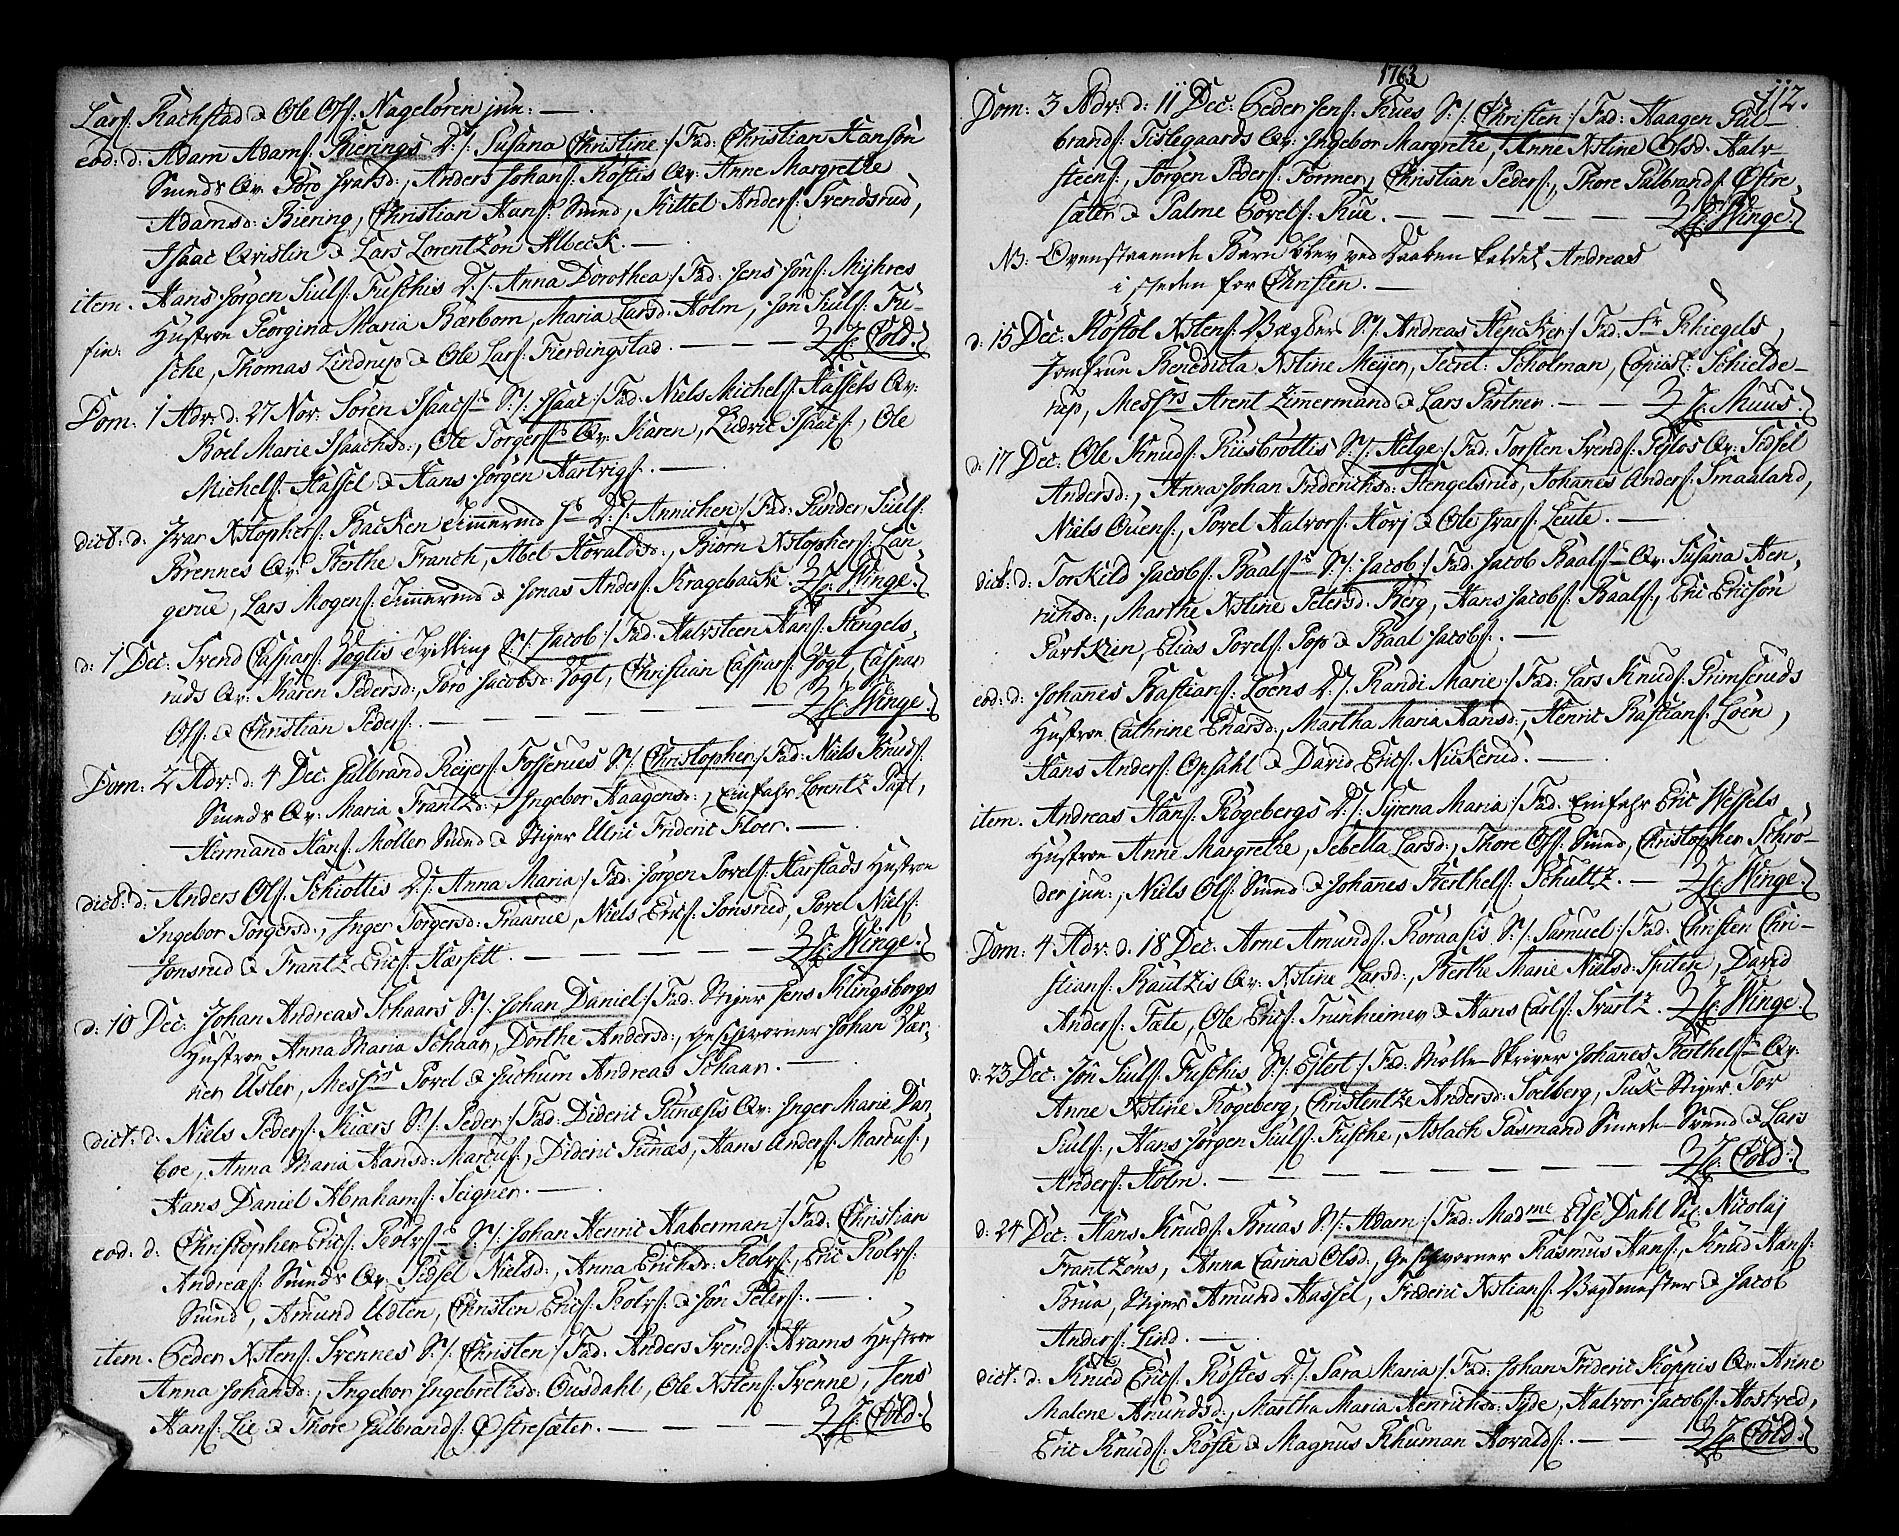 Lars: Rachstad & Ole Ols: Nagelören jun: —
eod: d: Adam Adams: Bierings D:/: Susana Christine :/ Fad: Christian Hansön
Smeds Qv: Poro Ivarsd:, Anders Johans: Kostis Qv: Anne Margrethe
Adamsd: Biering, Christian Hans: Smed, Kittel Anders: Svendsrud,
Isaac Qvistin & Lars Lorentzön Albeck. —
item. Hans Jörgen Siuls: Fuschis D:/: Anna Dorothea :/ Fad: Jens Jons: Mijhres
Hustroe Georgina Maria Barbom, Maria Larsd: Holm, Jon Siuls: Fu-
sche, Thomas Lindrup & Ole Lars: Fierdingstad. — — — Hr: Cold.
Dom: 1 Adv: d: 27 Nov: Sören Isaacs: S:/: Isaac :/ Fad: Niels Michels: Hassels Qv:
Boel Marie Isaachsd:, Ole Torgers: Qv: Karen, Ludvic Isaacs:, Ole
Michels: Hassel & Hans Jörgen Hartvigs: —
dict: d: Ivar Xstophers: Backen D:/: Annichen :/ Fad: Gunder Siuls:
Brennes Qv: Berthe Franch, Abel Haraldsd:, Biörn Xstophers: Lan-
gerue, Lars Mogens: & Jonas Anders: Kragebacke. Hr: Winge.
d: 1 Dec: Svend Caspars: Vogtis Trilling S:/: Jacob :/ Fad: Halvsteen Hans: Stengels-
ruds Qv: Karen Pedersd:, Poro Jacobsd: Vogt, Christian Caspars: Vogt, Caspar
Ols: & Christian Peders: — — — Hr: Winge.
Dom: 2 Adv: d: 4 Dec: Gulbrand Reijers: Fosserues S:/: Christopher :/ Fad: Niels Knuds:
Smeds Qv: Maria Frantzd:, Ingebor Haagensd:, Einfahr Lorentz Past,
Hermand Hans: Möller Smed & Stiger Ulric Frideric Floer. —
dict: d: Anders Ols: Schiottis D:/: Anna Maria :/ Fad: Jörgen Povels: Harstads Hustroe
Ingebor Torgersd:, Inger Torgersd: Graanie, Niels Erics: Jonsrud, Povel Niels:
Jonsrud & Frantz Erics: Kársett. — — — Hr: Winge.
d: 10 Dec: Johan Andreas Schaars S:/: Johan Daniel :/ Fad: Stiger Jens Klingsborgs
Hustroe Anna Maria Schaar, Dorthe Andersd:, Geschworner Johan Var-
ner Usler, Messrs Povel & Jochum Andreas Schaar. —
dict: d: Niels Peders: Kiærs S:/: Peder :/ Fad: Dideric Gunæsis Qv: Inger Marie Dan,
Coe, Anna Maria Hansd: Marcus:, Dideric Gunæs, Hans Anders: Marcus:,
Hans Daniel Abrahams: Seigner. —
eod: d: Christopher Erics: Rolvs: S:/: Johan Henric Haberman :/ Fad: Christian
Andreæs: Smeds Qv: Sidsel Nielsd:, Anna Erichsd: Rolvs:, Eric Rolvs:
Smed, Amund Udten, Christen Erics: Rolvs: & Jon Peters: —
item. Peder Xstens: Svennes S:/: Christen :/ Fad: Anders Svends: Arams Hustroe
Anna Johansd:, Ingebor Ingebrethsd: Ousdahl, Ole Xstens: Svenne, Jens
Hans: Lie & Thore Gulbrands: Østresæter. — — — Hr: Cold.
1763
112.
Dom: 3 Adv: d: 11 Dec: Peder Jens: Rues S:/: Christen :/ Fad: Haagen Gul-
brands: Tislegaards Qv: Ingebor Margrethe, Anne Xstine Olsd: Halv-
steens:, Jörgen Peders: Former, Christian Peders:, Thore Gulbrands: Østre,
sæter & Palme Povels: Rue. — — — Hr: Winge.
NB: Ovenstaaende Barn blev ved Daaben kaldet Andreas
i steden for Christen. —
d: 15 Dec: Kostol Xstens: S:/: Andreas Hepcker :/ Fad: Fr Rhiegels,
Jomfrue Benedicta Xstine Meijer, Secret: Scholman, Copiist: Schielde-
rup, Messrs Arent Zimermand & Lars Partner. — — Hr: Muus.
d: 17 Dec: Ole Knuds: Riisbrottis S:/: Helge :/ Fad: Torsten Svends: Teslos Qv: Sidsel
Andersd:, Anna Johan Friderichsd: Stengelsrud, Johanes Anders: Smaaland,
Niels Ouens:, Povel Halvors: Korj & Ole Ivars: Leute. —
dict: d: Torkild Jacobs: Baals: S:/: Jacob :/ Fad: Jacob Baals: Qv: Susana Hen,
richsd:, Marthe Xstine Petersd: Berg, Hans Jacobs: Baals:, Eric Ericsön
Partkien, Elias Povels: Pop & Baal Jacobs: —
eod: d: Johannes Bastians: Loens D:/: Randi Marie :/ Fad: Lars Knuds: Grimseruds
Hustroe Cathrine Enarsd:, Martha Maria Hansd:, Henric Bastians: Loen,
Hans Anders: Opsahl & David Erics: Nickerud. —
item. Andreas Hans: Rogebergs D:/: Syrena Maria :/ Fad: Einfahr Eric Wessels
Hustroe Anne Margrethe, Sebella Larsd:, Thore Ols: Smed, Christopher Schrö-
der jun:, Niels Ols: Smed & Johanes Berthels: Schultz. — Hr: Winge.
Dom: 4 Adv: d: 18 Dec: Arne Amunds: Roraasis S:/: Samuel :/ Fad: Christen Chri-
stians: Bautzis Qv: Xstine Larsd:, Berthe Marie Nielsd: Spiten, David
Anders: Tæte, Ole Erics: Trunheimer & Hans Carls: Svartz. Hr: Winge.
d: 23 Dec: Jon Siuls: Fuschis S:/: Eilert :/ Fad: Mölle Skriver Johannes Berthels: Qv:
Anne Xstine Rogeberg, Christentze Andersd: Soelberg, Puk-Stiger Tor
Siuls:, Hans Jörgen Siuls: Fusche, Aslach Gasmand Smede-Svend & Lars
Anders: Holm. — — — Hr: Cold.
d: 24 Dec: Hans Knuds: Bruas S:/: Adam :/ Fad: Madme Else Dahl Sr: Nicolaj
Frantzöns, Anna Carina Olsd:, Geschworner Rasmus Hans:, Knud Hans:
Brua, Stiger Amund Hassel, Frideric Xstians: Bergmester & Jacob
Anders: Lind. —
dict: d: Knud Erics: Röstes D:/: Sara Maria :/ Fad: Johan Frideric Koppis Qv: Anne
Malene Amundsd:, Martha Maria Henrichsd: Syde, Halvor Jacobs: Hostved,
Eric Knuds: Röste & Magnus Rhuman Hovalds: — — Hr: Cold.